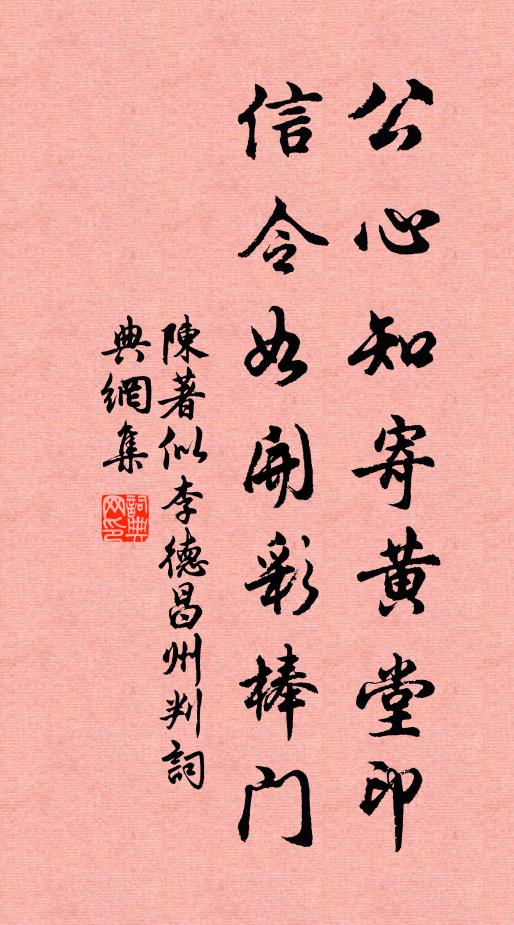 公心知寄黄堂印
信令如開彩棒门
陳著似李德昌州判詞
典網集
詞典网印